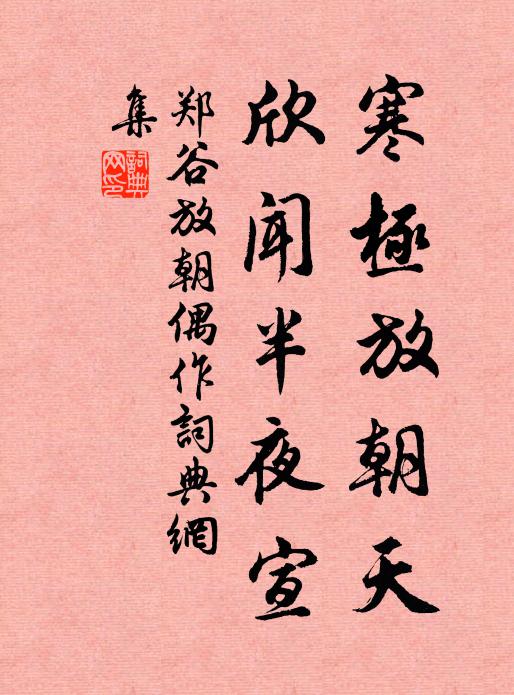 寒極放朝天
欣聞半夜宣
郑谷放朝偶作詞典網
集
詞典
网印